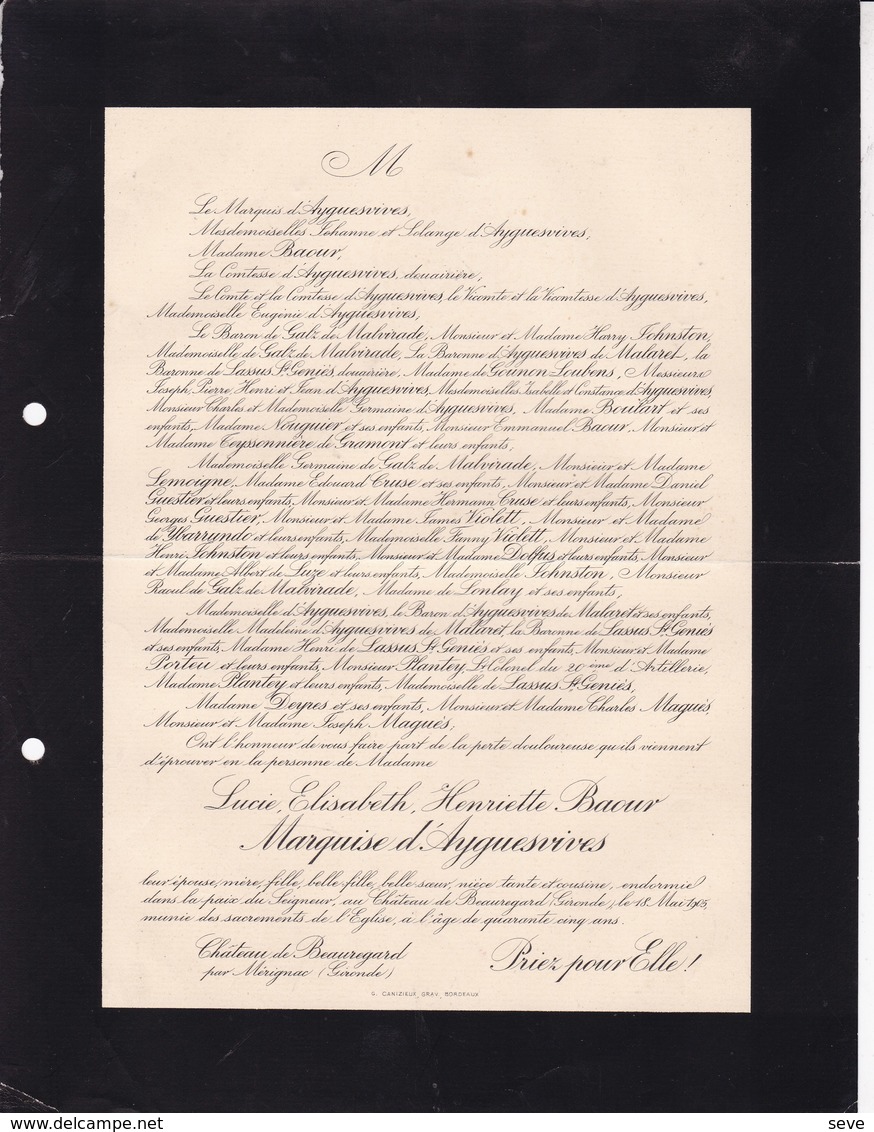 M
Le Marquis d'Ayguesvives,
Mesdemoiselles Johanne et Solange d'Ayguesvives,
Madame Baour,
La Comtesse d'Ayguesvives, douairière,
Le Comte et la Comtesse d'Ayguesvives, le Vicomte et la Vicomtesse d'Ayguesvives,
Mademoiselle Eugénie d'Ayguesvives,
Le Baron de Galz de Malvirade, Monsieur et Madame Harry Johnston,
Mademoiselle de Galz de Malvirade, La Baronne d'Ayguesvives de Malaret, la
Baronne de Lassus St Geniès, douairière, Madame de Gounon Loubens, Messieurs
Joseph, Pierre, Henri et Jean d'Ayguesvives, Mesdemoiselles Isabelle et Constance d'Ayguesvives,
Monsieur Charles et Mademoiselle Germaine d'Ayguesvives, Madame Boutart et ses
enfants, Madame Nouguier et ses enfants, Monsieur Emmanuel Baour, Monsieur et
Madame Teyssonnière de Gramont et leurs enfants,
Mademoiselle Germaine de Galz de Malvirade, Monsieur et Madame
Lemoigne, Madame Edouard Cruse et ses enfants, Monsieur et Madame Daniel
Guestier et leurs enfants, Monsieur et Madame Hermann Cruse et leurs enfants, Monsieur
Georges Guestier, Monsieur et Madame James Violett, Monsieur et Madame
de Ybarrundo et leurs enfants, Mademoiselle Fanny Violett, Monsieur et Madame
Henri Johnston et leurs enfants, Monsieur et Madame Dolfus et leurs enfants, Monsieur
et Madame Albert de Luze et leurs enfants, Mademoiselle Johnston, Monsieur
Raoul de Galz de Malvirade, Madame de Lontay et ses enfants,
Mademoiselle d'Ayguesvives, le Baron d'Ayguesvives de Malaret et ses enfants,
Mademoiselle Madeleine d'Ayguesvives de Malaret, la Baronne de Lassus St Geniès
et ses enfants, Madame Henri de Lassus St Geniès et ses enfants, Monsieur et Madame
Porteu et leurs enfants, Monsieur Plantey, Lt Colonel du 20ème d'Artillerie,
Madame Plantey et leurs enfants, Mademoiselle de Lassus St Geniès,
Madame Deyres et ses enfants, Monsieur et Madame Charles Maguès,
Monsieur et Madame Joseph Maguès;
Ont l'honneur de vous faire part de la perte douloureuse qu'ils viennent
d'éprouver en la personne de Madame
Lucie, Elisabeth, Henriette Baour
Marquise d'Ayguesvives
leur épouse, mère, fille, belle-fille, belle-sœur, nièce tante et cousine, endormie
dans la paix du Seigneur, au Château de Beauregard (Gironde) le 18 Mai 1905,
munie des sacrements de l'Eglise, à l'âge de quarante cinq ans.
Château de Beauregard
par Mérignac (Gironde)
Priez pour Elle!
G. CANIZIEUX, GRAV. BORDEAUX
seve